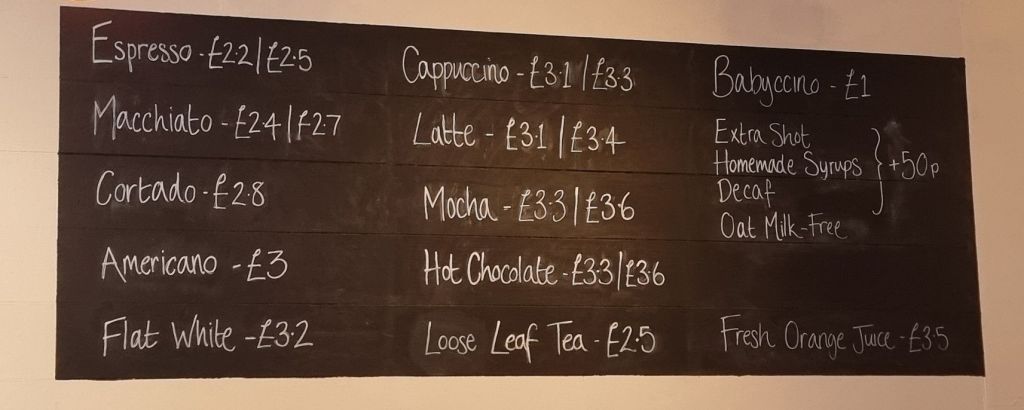 Espresso - £2.2 | £2.5
Macchiato - £2.4 | £2.7
Cortado - £2.8
Americano - £3
Flat White - £3.2
Cappuccino - £3.1 | £3.3
Latte - £3.1 | £3.4
Mocha - £3.3 | £3.6
Hot Chocolate - £3.3 | £3.6
Loose Leaf Tea - £2.5
Babyccino - £1
Extra Shot
Homemade Syrups } +50p
Decaf
Oat Milk-Free
Fresh Orange Juice - £3.5